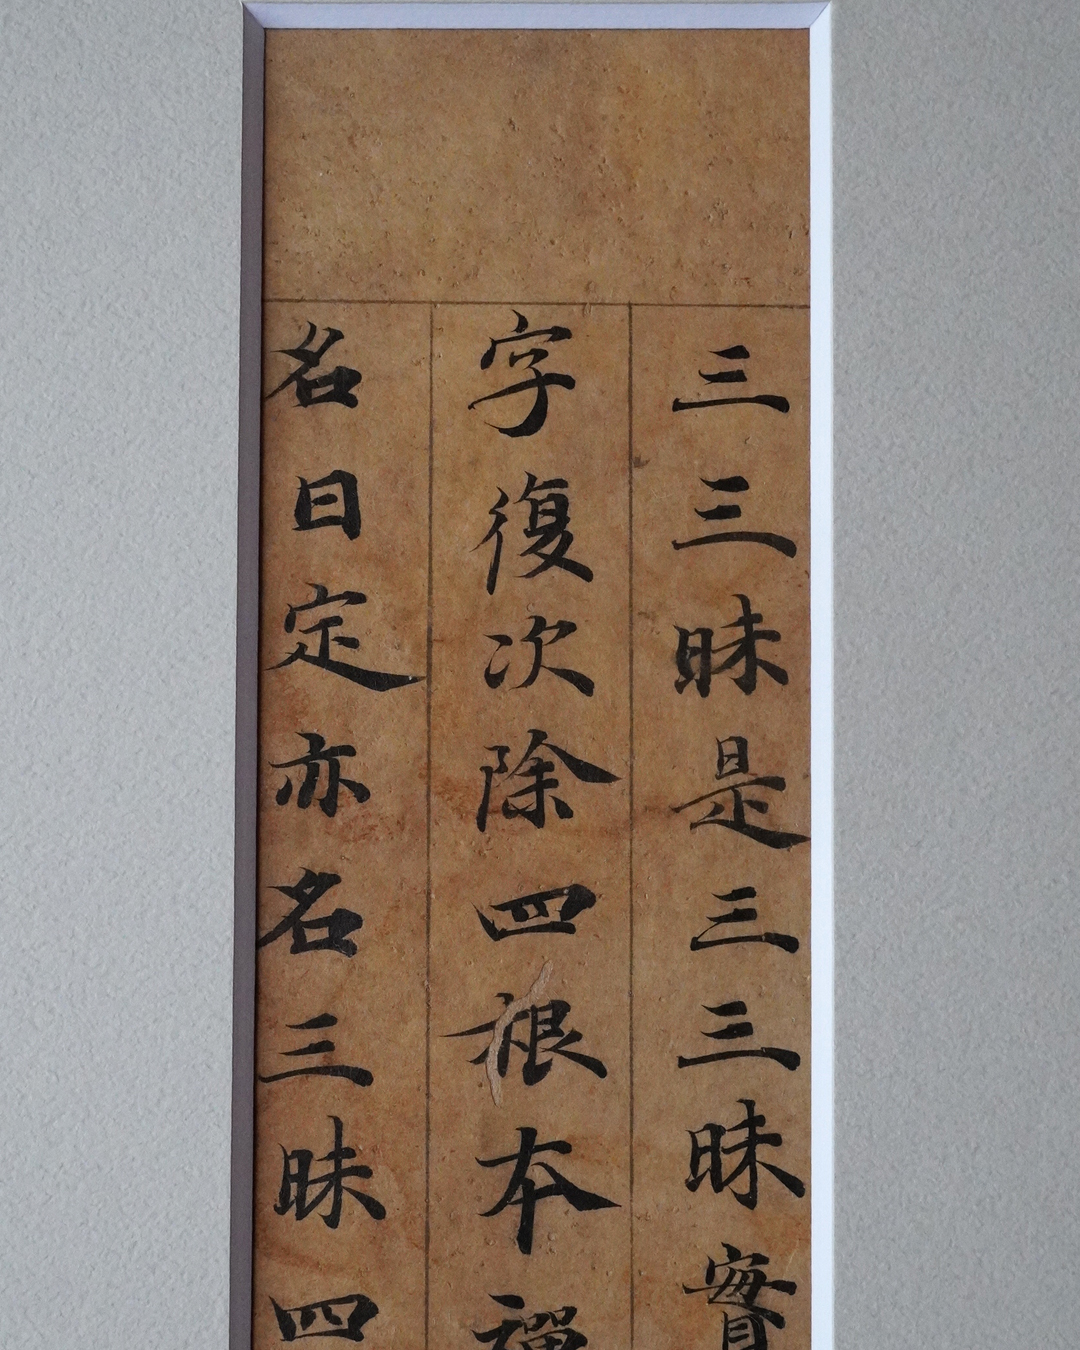 三三昧是三三昧實
字復次除四根本禪
名曰定亦名三昧四